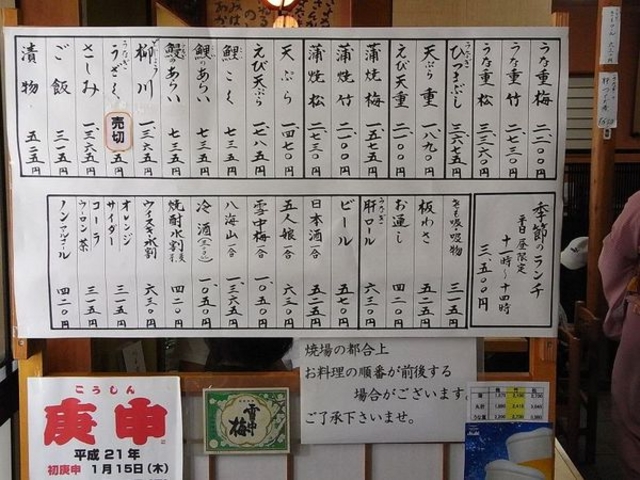 うな重梅 二、一〇〇円
うな重竹 二、七三〇円
うな重松 三、三六〇円
ひつまぶし 三、六七五円
天ぷら重 一、八九〇円
えび天重 二、一〇〇円
蒲焼梅 一、五七五円
蒲焼竹 二、一〇〇円
蒲焼松 二、七三〇円
天ぷら 一、四七〇円
えび天ぷら 一、七八五円
鯉こく 七三五円
鯉のあらい 七三五円
柳川 一、三六五円
うざく 売切
さしみ 一、三六五円
ご飯 三一五円
漬物 五二五円
季節のランチ
平日昼限定
十一時〜十四時
三、五〇〇円
きも吸・吸物 三一五円
板わさ 五二五円
お通し 四二〇円
肝ロール 六三〇円
ビール 五七〇円
日本酒一合 五二五円
五人娘一合 六三〇円
雪中梅一合 一、〇五〇円
八海山一合 一、三六五円
冷酒 一、〇五〇円
焼酎水割 四二〇円
ウイスキー水割 六三〇円
オレンジ
サイダー 三一五円
コーラ
ウーロン茶 三一五円
ノンアルコール 四二〇円
焼場の都合上
お料理の順番が前後する
場合がございます。
ご了承下さいませ。
こうしん
庚申
平成21年
初庚申 1月15日(木)
雪中梅